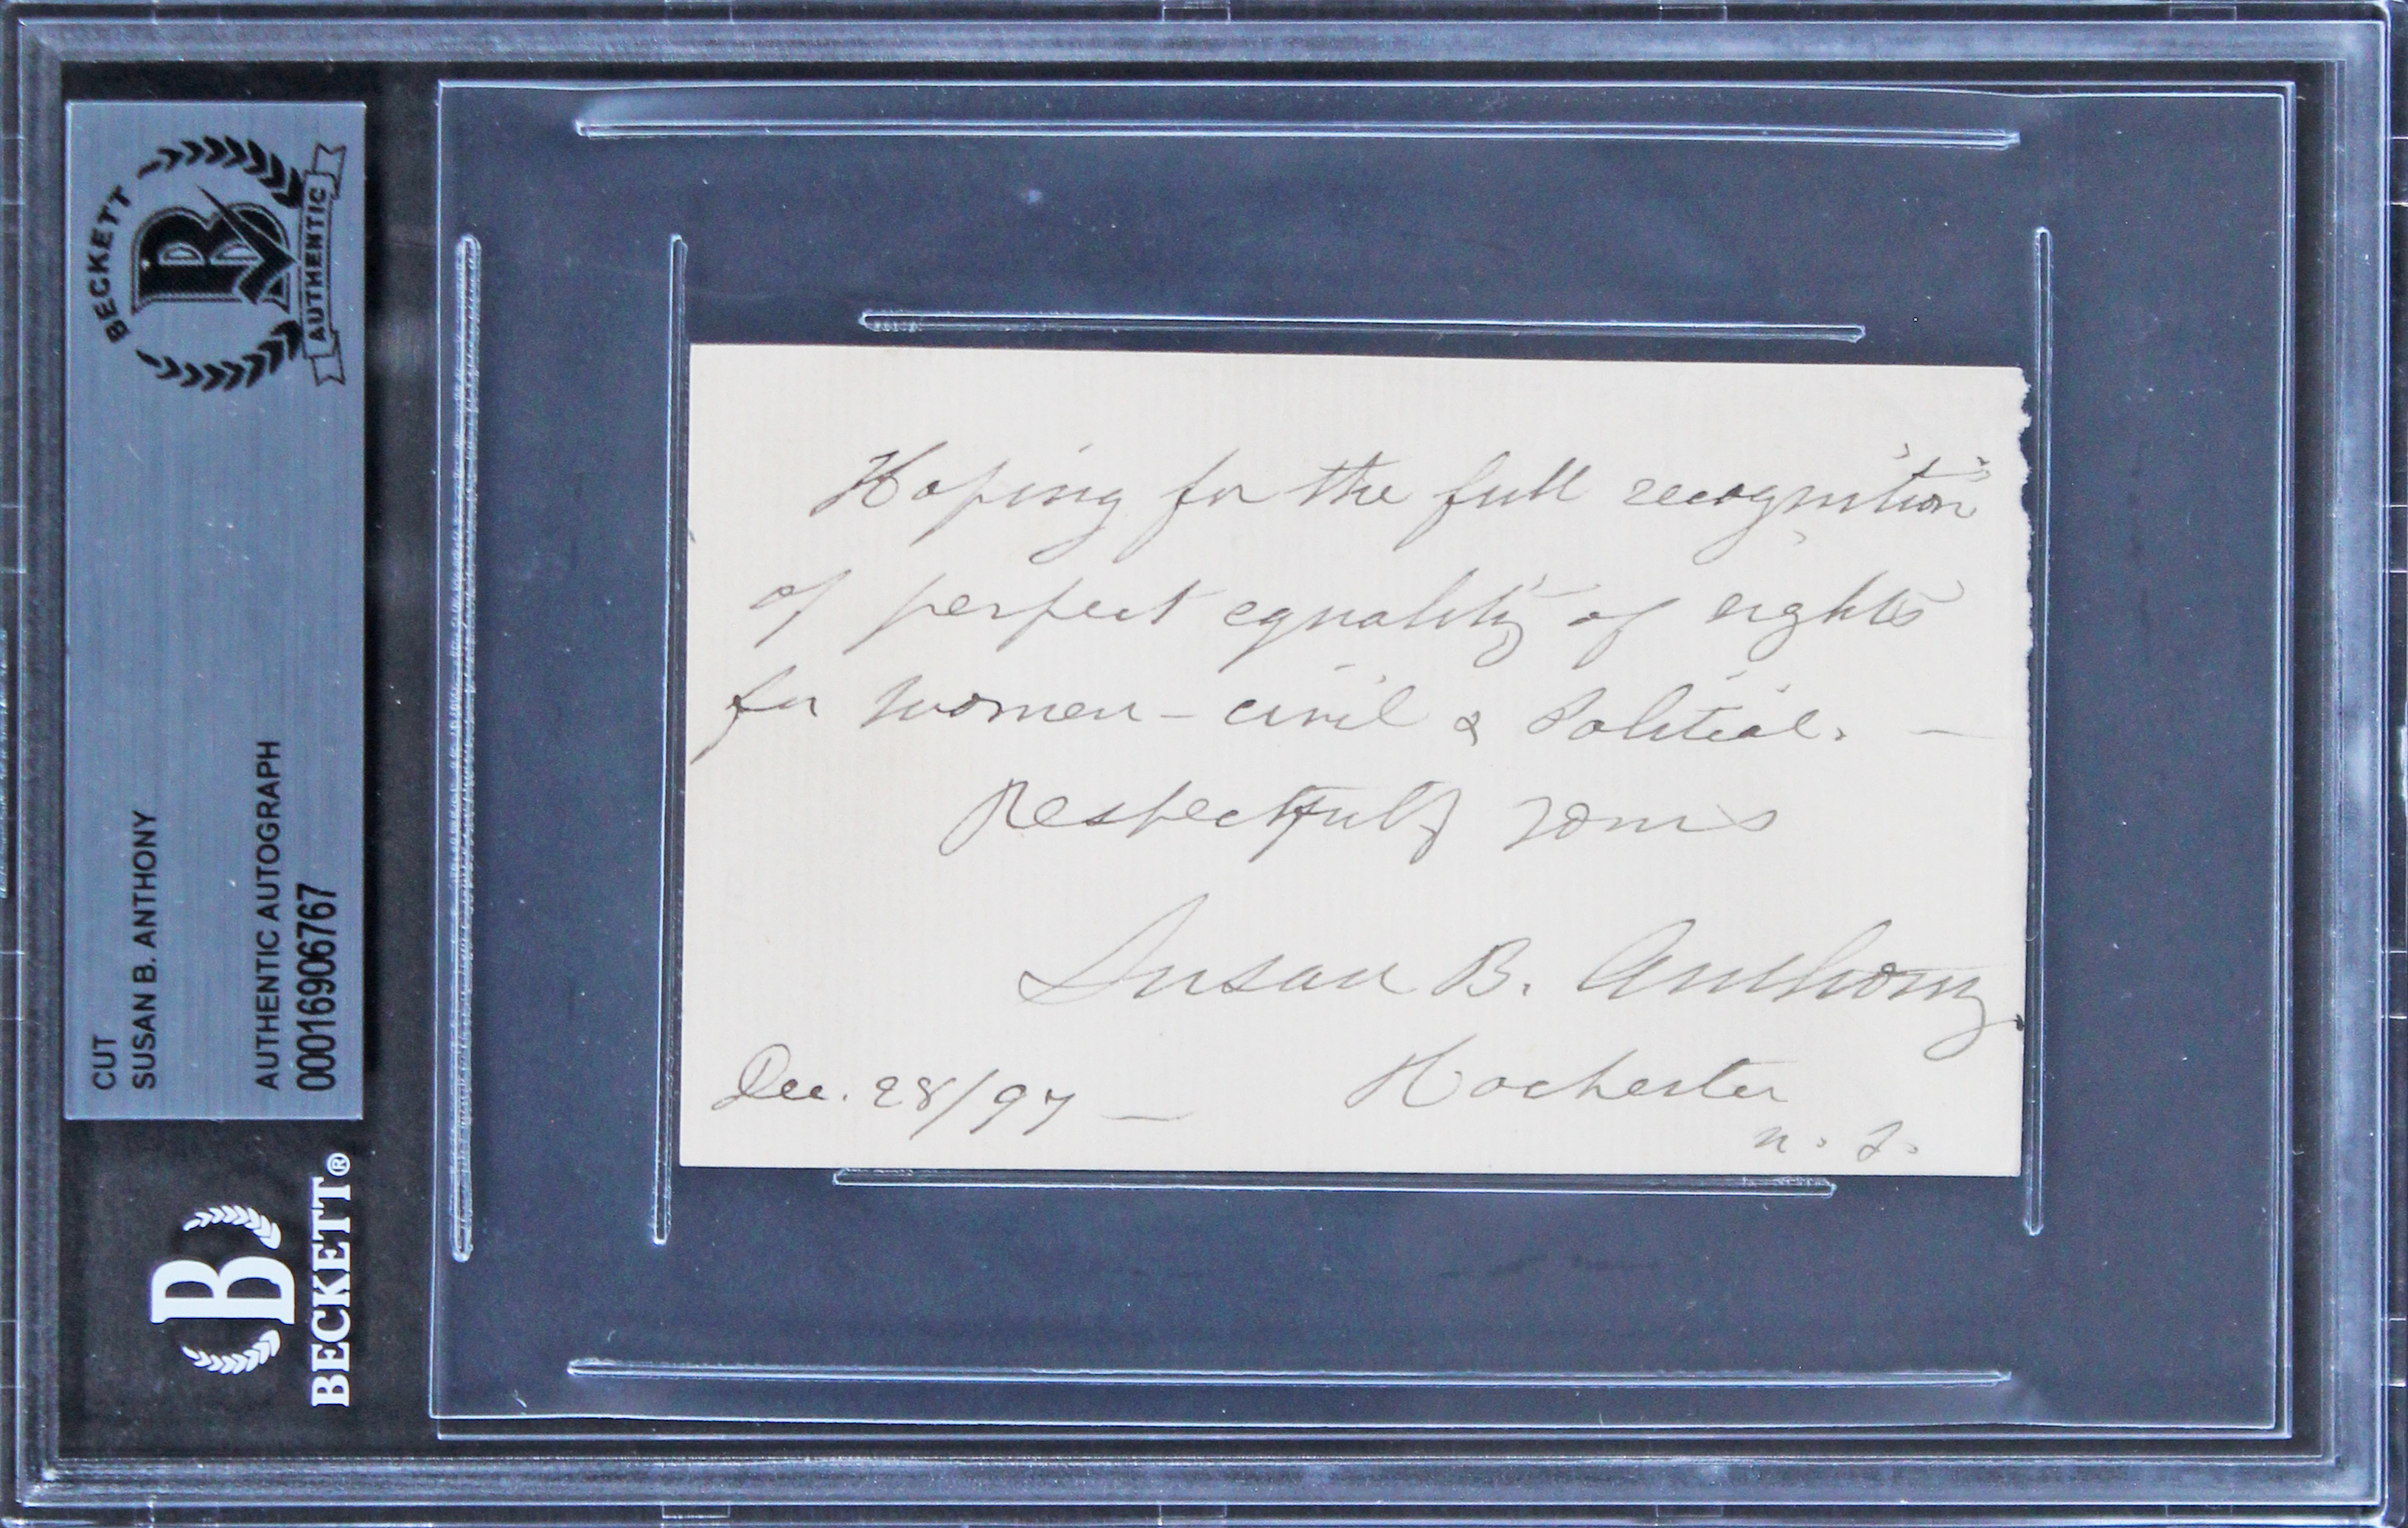 BECKETT
AUTHENTIC
CUT
SUSAN B. ANTHONY
AUTHENTIC AUTOGRAPH
00016906767
BECKETT®
Hoping for the full recognition
of perfect equality of rights
for women - civil & Political. —
Respectfully yours
Susan B. Anthony
Dec. 28/97 — Rochester
N. Y.